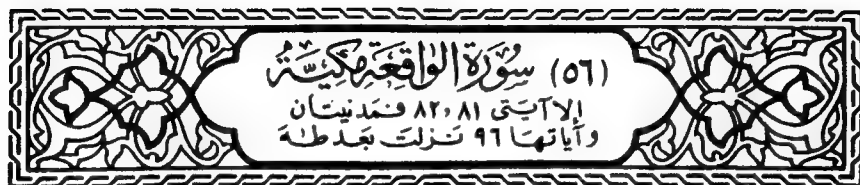 (٥٦) سُورَةُ الوَاقِعَةِ مَكِّيَّة
إلا آيتى ٨١ ، ٨٢ فمدنيتان
وآياتها ٩٦ نزلت بعد طه